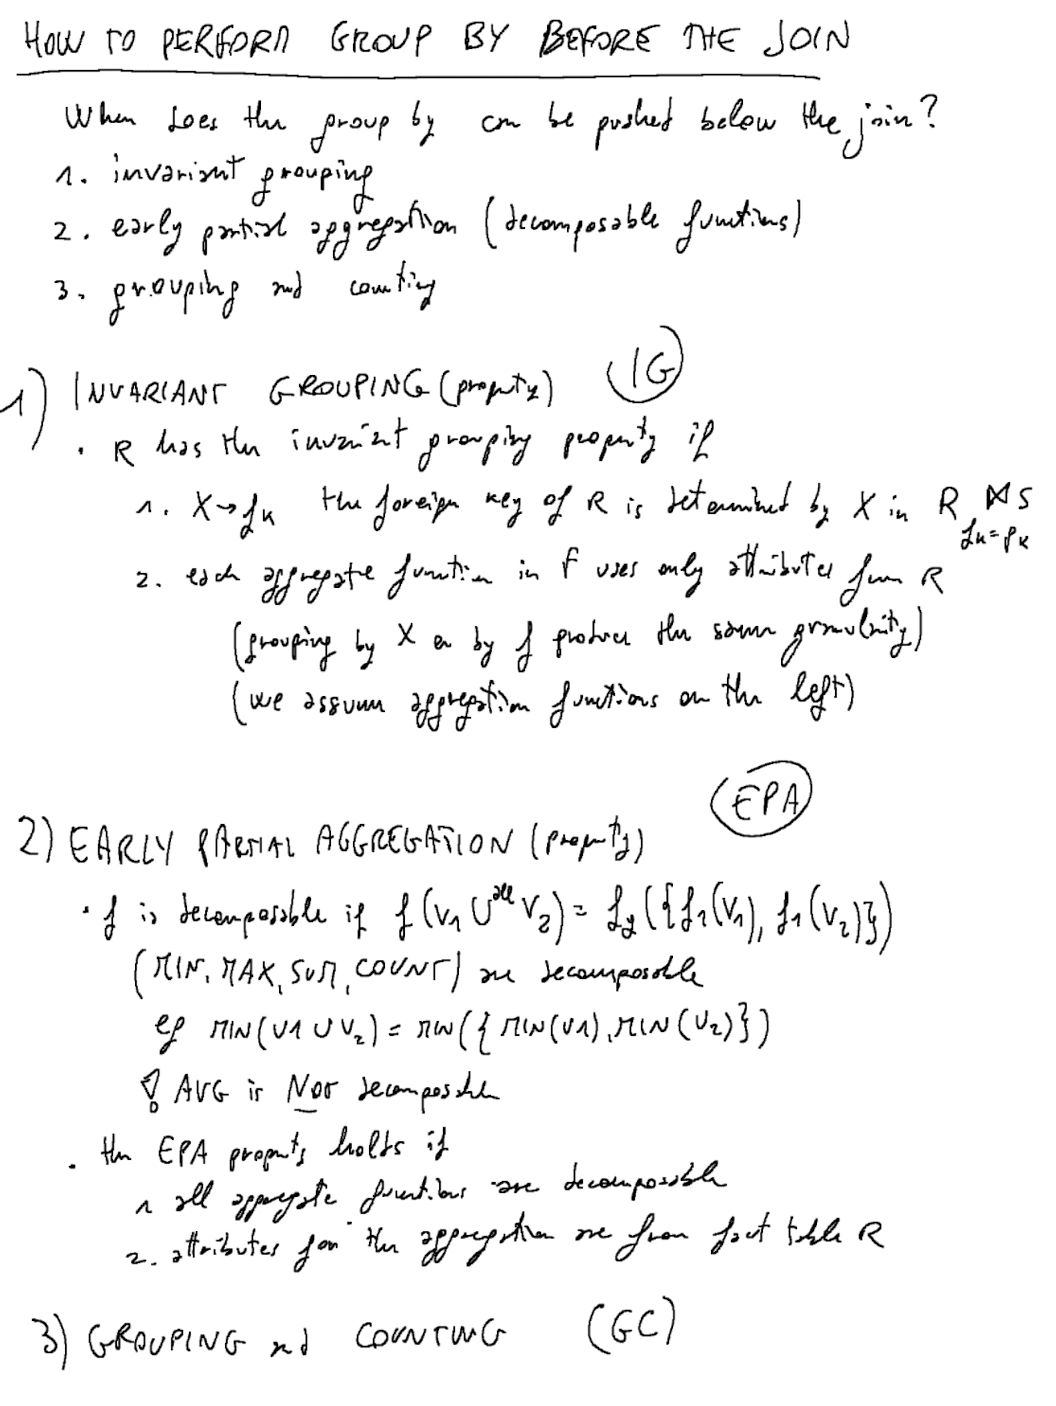 HOW TO PERFORM GROUP BY BEFORE THE JOIN
When does the group by can be pushed below the join?
1. invariant grouping
2. early partial aggregation (decomposable functions)
3. grouping and counting
1) INVARIANT GROUPING (property) IG
· R has the invariant grouping property if
1. X → fk the foreign key of R is determined by X in R ⋈ S
fk = pk
2. each aggregate function in F uses only attributes from R
(grouping by X or by f produce the same granularity)
(we assume aggregation functions on the left)
EPA
2) EARLY PARTIAL AGGREGATION (property)
· f is decomposable if f(V1 ∪^all V2) = f2({f1(V1), f1(V2)})
(MIN, MAX, SUM, COUNT) are decomposable
eg MIN(V1 ∪ V2) = MIN({MIN(V1), MIN(V2)})
! AVG is NOT decomposable
· the EPA property holds if
1 all aggregate functions are decomposable
2. attributes for the aggregation are from fact table R
3) GROUPING and COUNTING (GC)